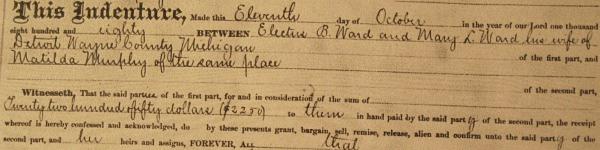 This Indenture, Made this Eleventh day of October in the year of our Lord one thousand
eight hundred and eighty BETWEEN Electus B. Ward and Mary L. Ward his wife of
Detroit Wayne County Michigan of the first part, and
Matilda Murphy of the same place
of the second part,
Witnesseth, That the said parties of the first part, for and in consideration of the sum of
Twenty two hundred fifty dollars ($2250) to them in hand paid by the said party of the second part, the receipt
whereof is hereby confessed and acknowledged, do by these presents grant, bargain, sell, remise, release, alien and confirm unto the said party of the
second part, and her heirs and assigns, FOREVER, All that